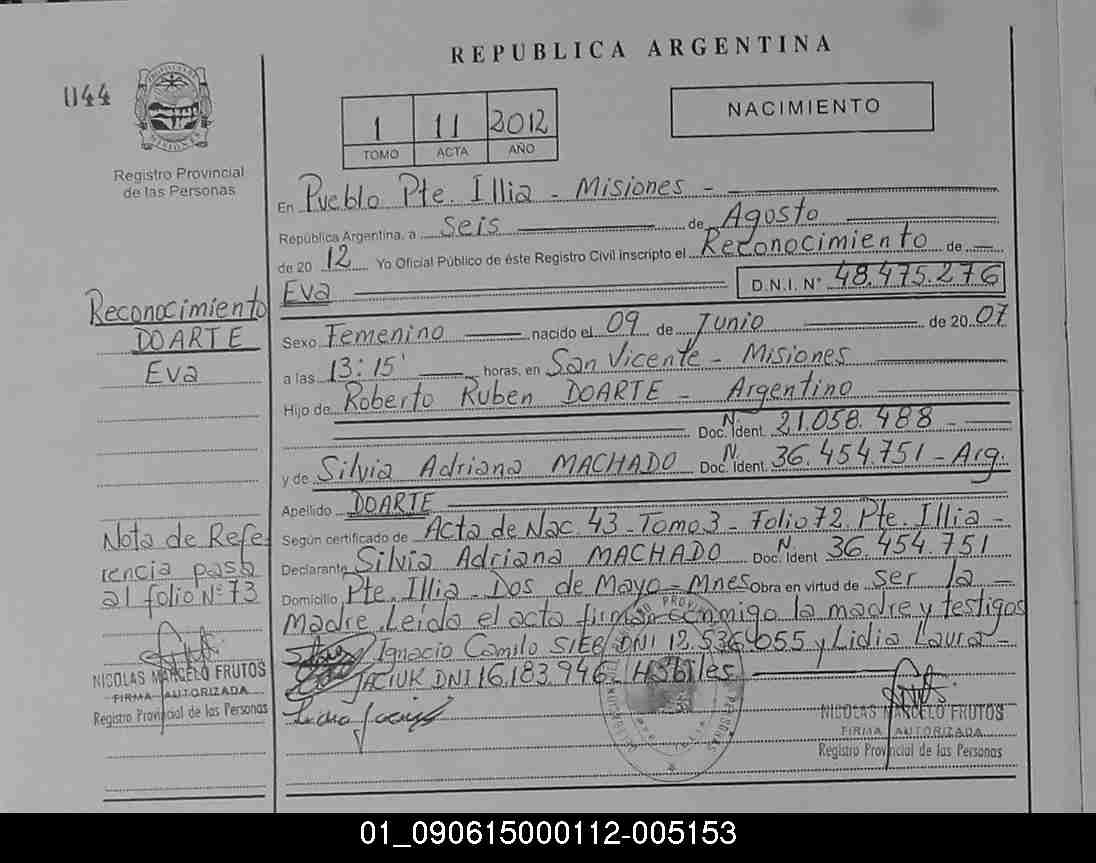 REPUBLICA ARGENTINA
044
Registro Provincial
de las Personas
1 11 2012
TOMO ACTA AÑO
NACIMIENTO
En Pueblo Pte. Illia - Misiones -
República Argentina, a seis de Agosto
de 20 12 Yo Oficial Público de éste Registro Civil inscripto el Reconocimiento de
Eva D.N.I. N° 48.475.276
Sexo Femenino nacido el 09 de Junio de 20 07
a las 13:15' horas, en San Vicente - Misiones
Hijo de Roberto Ruben DOARTE - Argentino
Doc. N. Ident. 21.058.488 -
y de Silvia Adriana MACHADO Doc. N. Ident. 36.454.751 - Arg.
Apellido DOARTE
Según certificado de Acta de Nac. 43 - Tomo 3 - Folio 72. Pte. Illia -
Declarante Silvia Adriana MACHADO Doc. N. Ident 36.454.751
Domicilio Pte. Illia - Dos de Mayo - Mnes Obra en virtud de ser la -
Madre. Leída el acta firman conmigo la madre y testigos
Ignacio Camilo DNI 12.536.055 y Lidia Laura -
JACIUK DNI 16.183.946 - Hábiles
Reconocimiento
DOARTE
Eva
Nota de Refe
rencia pasa
al folio N° 73
NICOLAS MARCELO FRUTOS
FIRMA AUTORIZADA
Registro Provincial de las Personas
NICOLAS MARCELO FRUTOS
FIRMA AUTORIZADA
Registro Provincial de las Personas
01_090615000112-005153